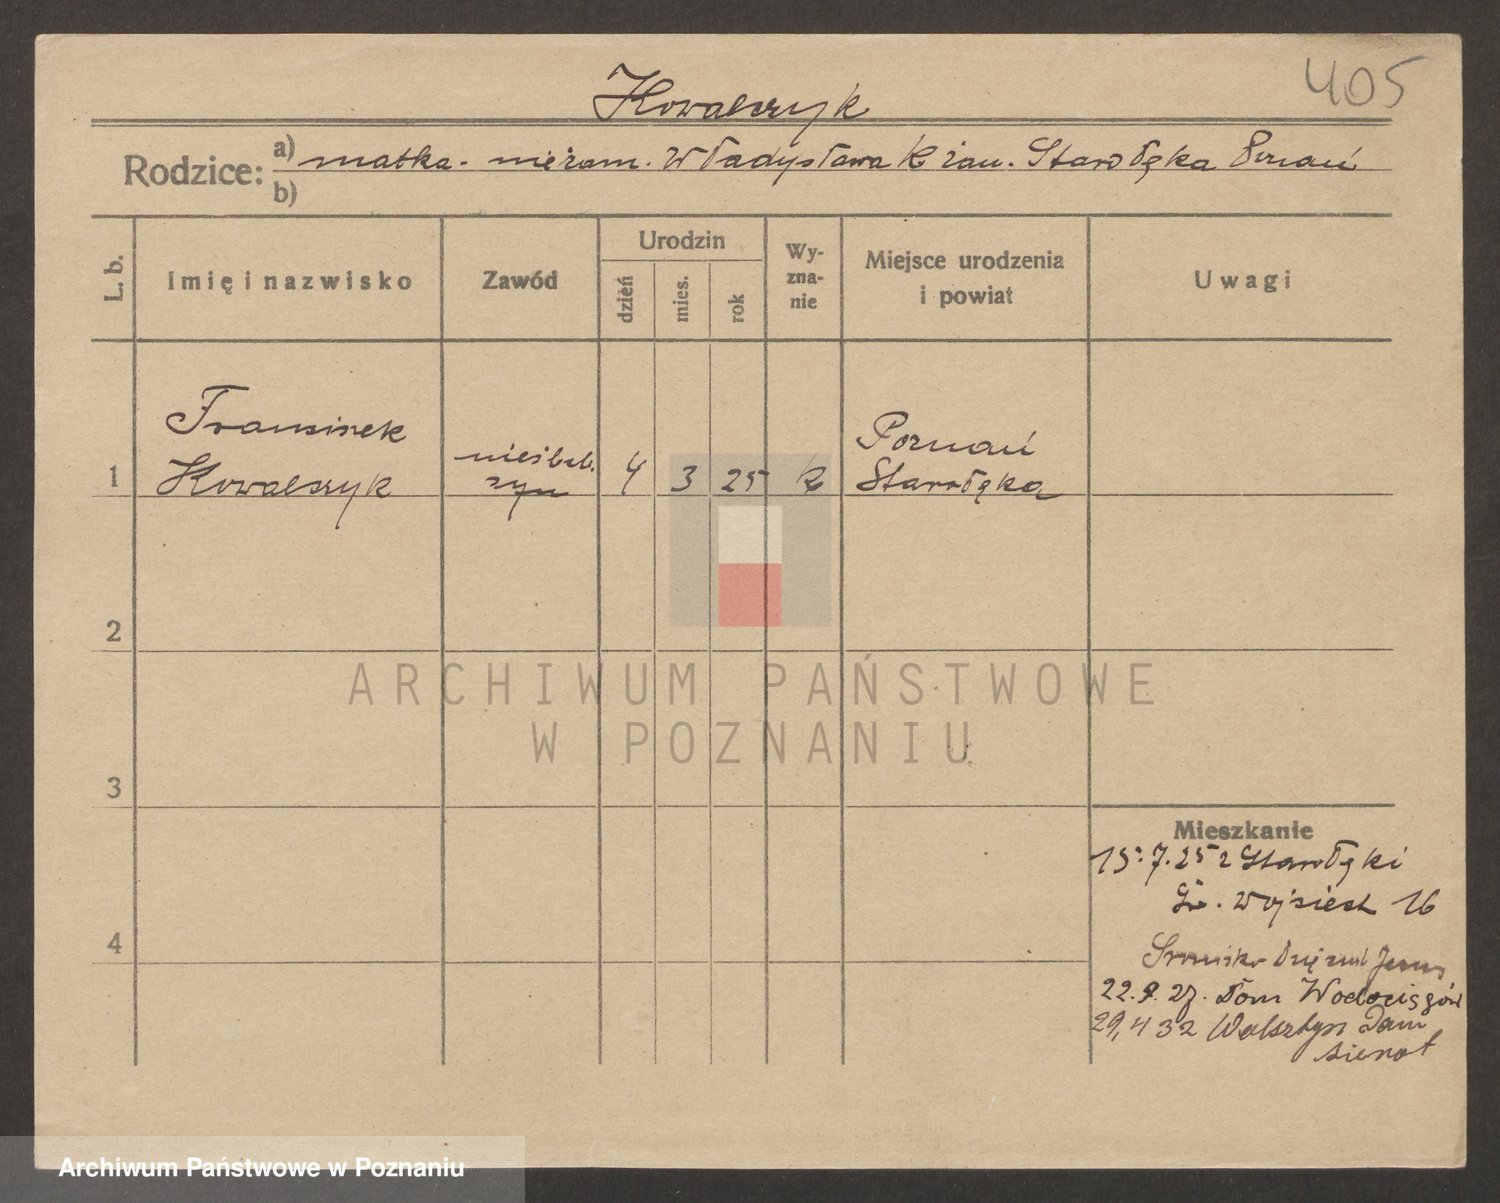 405
Kowalczyk
Rodzice: a) matka. niezam. Władysława K zam. Starołęka Poznań
b)
L. b. Imię i nazwisko Zawód Urodzin dzień mies. rok Wy-zna-nie Miejsce urodzenia i powiat Uwagi
Franciszek Poznań
1 Kowalczyk nieślub. syn 4 3 25 K Starołęka
2
ARCHIWUM PAŃSTWOWE
W POZNANIU
3
Mieszkanie
15.7.25 z Starołęki
Św. Wojciech 16
4
Jezus
22.9.27. Dom Wodociągów
29,4 32 Wolsztyn Dom
sierot
Archiwum Państwowe w Poznaniu